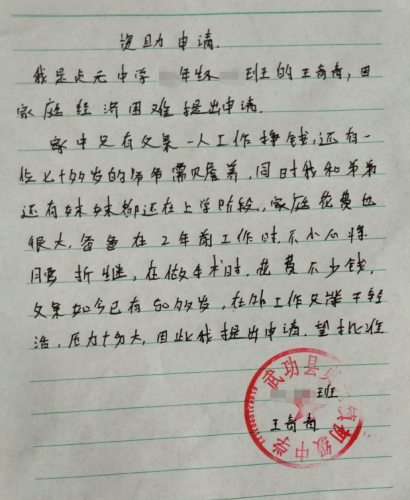 资助申请.
我是贞元中学 年级 班的王奇奇,因
家庭经济困难提出申请.
家中只有父亲一人工作挣钱,还有一
位七十多岁的爷爷需要赡养,同时我和弟弟
还有妹妹都还在上学阶段,家庭花费也
很大,爸爸在2年前工作时不小心将
腰折继,在做手术时,花费不少钱,
父亲如今已有50多岁,在外工作只能干轻
活,压力十分大,因此我提出申请,望批准
班
王奇奇
武功县贞 镇初级中学